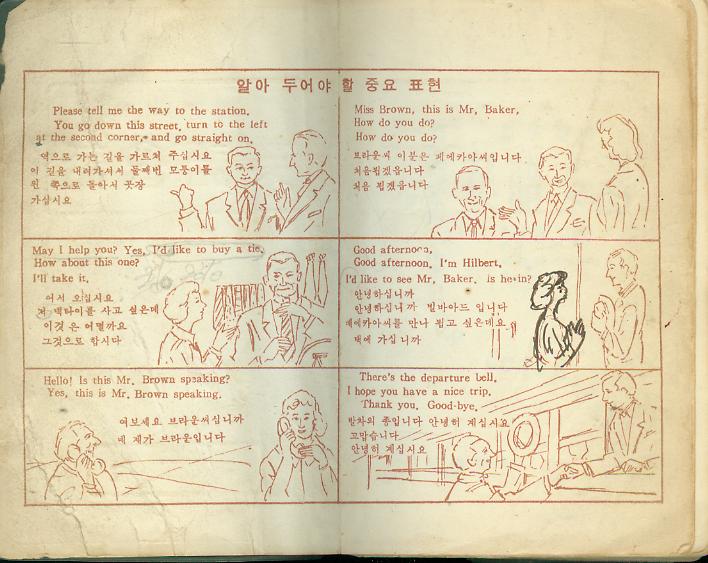 알아 두어야 할 중요 표현
Please tell me the way to the station.
You go down this street, turn to the left
at the second corner, and go straight on.
역으로 가는 길을 가르쳐 주십시요
이 길을 내려가셔서 둘째번 모퉁이를
왼 쪽으로 돌아서 곳장
가십시요
Miss Brown, this is Mr. Baker.
How do you do?
How do you do?
브라운씨 이분은 페에카아씨입니다
처음뵙겠읍니다
처음 뵙겠읍니다
May I help you? Yes, I'd like to buy a tie.
How about this one?
I'll take it.
어서 오십시요
넥타이를 사고 싶은데
이것 은 어떨까요
그것으로 합시다
Good afternoon.
Good afternoon. I'm Hilbert.
I'd like to see Mr. Baker, is he in?
안녕하십니까
안녕하십니까 빌바아드 입니다
페에카아씨를 만나 뵙고 싶은데요
댁에 가십니까
Hello! Is this Mr. Brown speaking?
Yes, this is Mr. Brown speaking.
여보세요 브라운씨십니까
네 제가 브라운입니다
There's the departure bell.
I hope you have a nice trip.
Thank you. Good-bye.
발차의 종입니다 안녕히 계십시요
고맙습니다
안녕히 계십시요